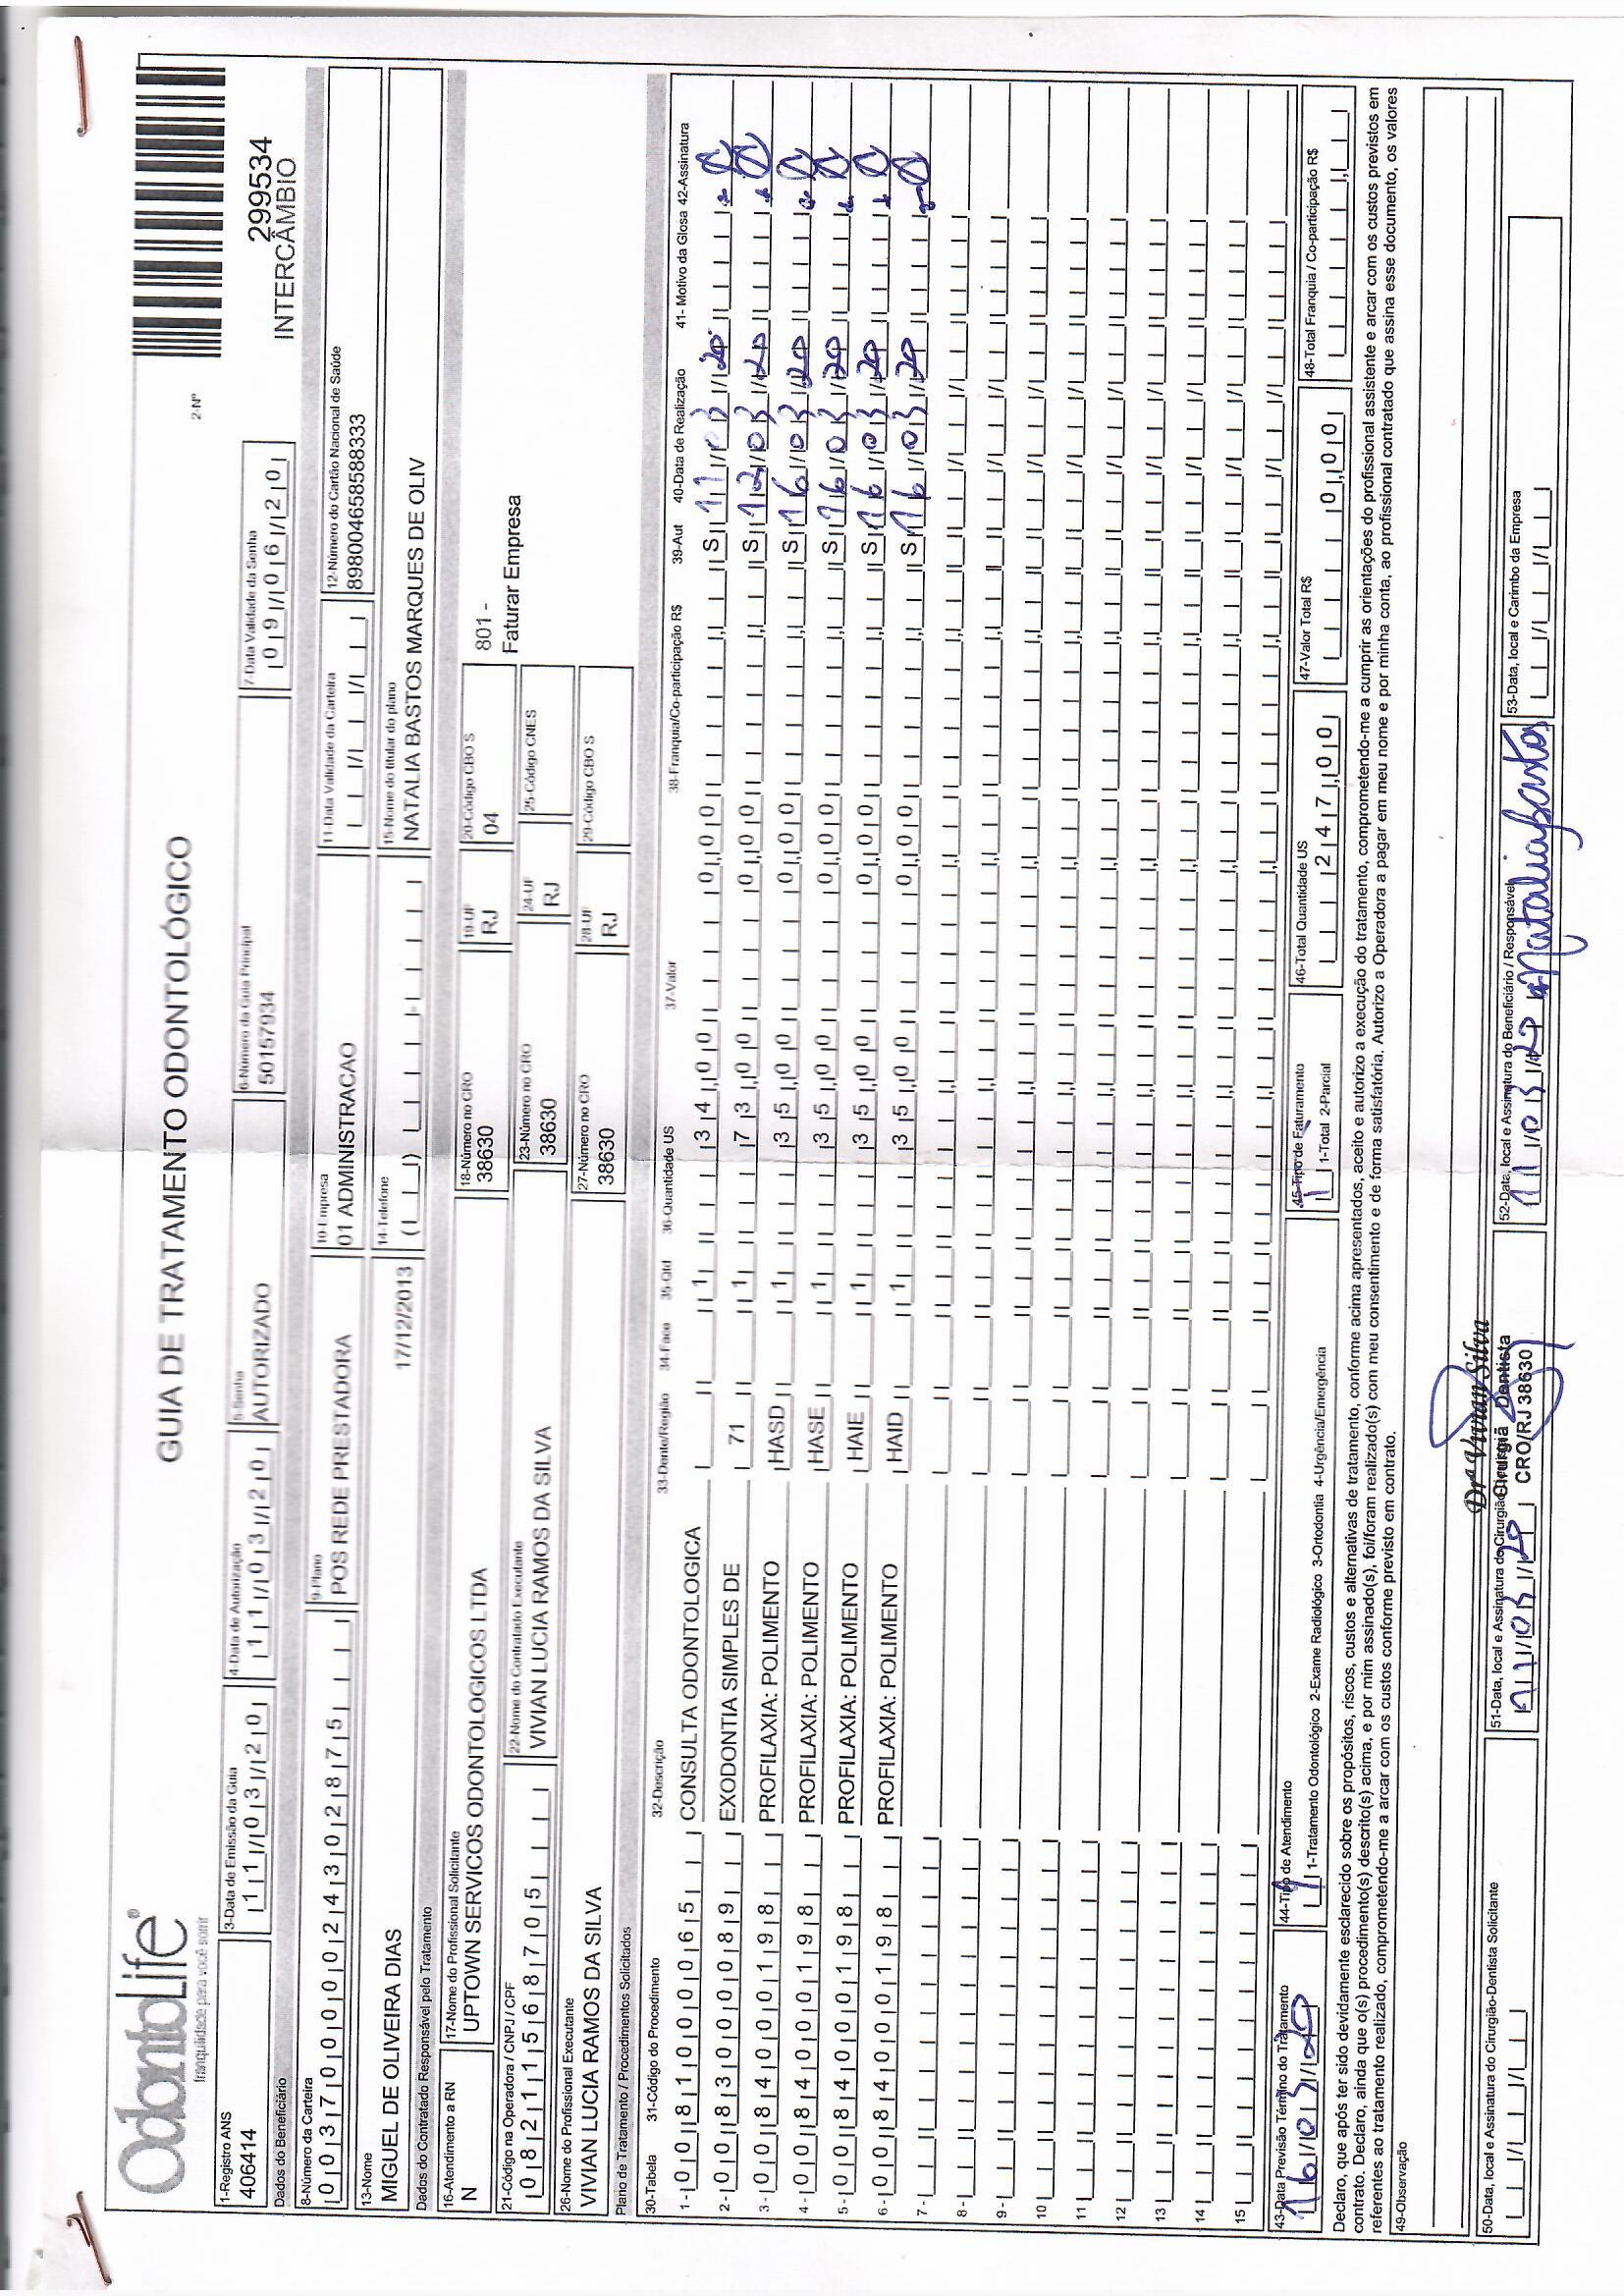 OdontoLife®
tranquilidade para você sorrir
GUIA DE TRATAMENTO ODONTOLÓGICO
2-Nº
299534
INTERCÂMBIO
1-Registro ANS
406414
3-Data de Emissão da Guia
11/03/20
4-Data de Autorização
11/03/20
5-Senha
AUTORIZADO
6-Número da Guia Principal
50157934
7-Data Validade da Senha
09/06/20
Dados do Beneficiário
8-Número da Carteira
00370000024302875
9-Plano
POS REDE PRESTADORA
10-Empresa
01 ADMINISTRACAO
11-Data Validade da Carteira
12-Número do Cartão Nacional de Saúde
898004658588333
13-Nome
MIGUEL DE OLIVEIRA DIAS
17/12/2013
14-Telefone
15-Nome do titular do plano
NATALIA BASTOS MARQUES DE OLIV
Dados do Contratado Responsável pelo Tratamento
16-Atendimento a RN
N
17-Nome do Profissional Solicitante
UPTOWN SERVICOS ODONTOLOGICOS LTDA
18-Número no CRO
38630
19-UF
RJ
20-Código CBO S
04
801 -
Faturar Empresa
21-Código na Operadora / CNPJ / CPF
08211568705
22-Nome do Contratado Executante
VIVIAN LUCIA RAMOS DA SILVA
23-Número no CRO
38630
24-UF
RJ
25-Código CNES
26-Nome do Profissional Executante
VIVIAN LUCIA RAMOS DA SILVA
27-Número no CRO
38630
28-UF
RJ
29-Código CBO S
Plano de Tratamento / Procedimentos Solicitados
30-Tabela 31-Código do Procedimento 32-Descrição 33-Dente/Região 34-Face 35-Qtd 36-Quantidade US 37-Valor 38-Franquia/Co-participação R$ 39-Aut 40-Data de Realização 41- Motivo da Glosa 42-Assinatura
1- 00 81000065 CONSULTA ODONTOLOGICA 1 34,00 0,00 S 11/03/20
2- 00 83000089 EXODONTIA SIMPLES DE 71 1 73,00 0,00 S 12/03/20
3- 00 84000198 PROFILAXIA: POLIMENTO HASD 1 35,00 0,00 S 16/03/20
4- 00 84000198 PROFILAXIA: POLIMENTO HASE 1 35,00 0,00 S 16/03/20
5- 00 84000198 PROFILAXIA: POLIMENTO HAIE 1 35,00 0,00 S 16/03/20
6- 00 84000198 PROFILAXIA: POLIMENTO HAID 1 35,00 0,00 S 16/03/20
7-
8-
9-
10
11
12
13
14
15
43-Data Previsão Término do Tratamento
16/03/20
44-Tipo de Atendimento
1 1-Tratamento Odontológico 2-Exame Radiológico 3-Ortodontia 4-Urgência/Emergência
45-Tipo de Faturamento
1 1-Total 2-Parcial
46-Total Quantidade US
247,00
47-Valor Total R$
0,00
48-Total Franquia / Co-participação R$
Declaro, que após ter sido devidamente esclarecido sobre os propósitos, riscos, custos e alternativas de tratamento, conforme acima apresentados, aceito e autorizo a execução do tratamento, comprometendo-me a cumprir as orientações do profissional assistente e arcar com os custos previstos em
contrato. Declaro, ainda que o(s) procedimento(s) descrito(s) acima, e por mim assinado(s), foi/foram realizado(s) com meu consentimento e de forma satisfatória. Autorizo a Operadora a pagar em meu nome e por minha conta, ao profissional contratado que assina esse documento, os valores
referentes ao tratamento realizado, comprometendo-me a arcar com os custos conforme previsto em contrato.
49-Observação
50-Data, local e Assinatura do Cirurgião-Dentista Solicitante
51-Data, local e Assinatura do Cirurgião-Dentista
11/03/20
Drª Vivian Silva
Cirurgiã Dentista
CRO/RJ 38630
52-Data, local e Assinatura do Beneficiário / Responsável
11/03/20 Natalia Bastos
53-Data, local e Carimbo da Empresa